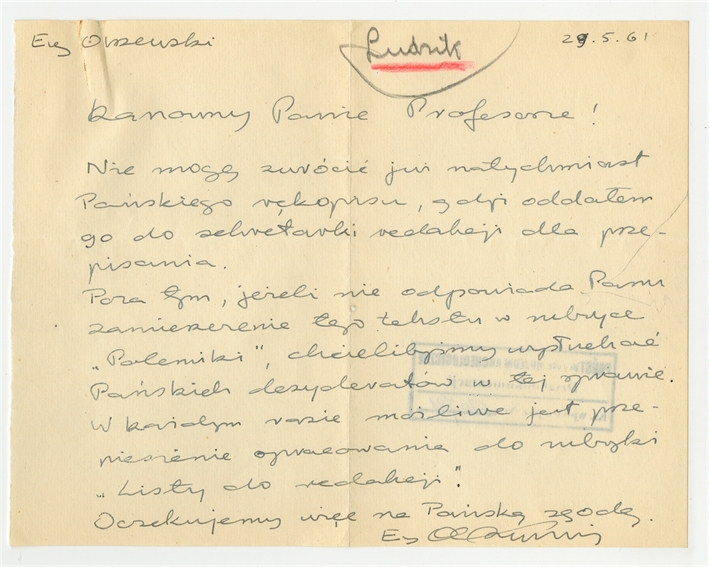 Eug Olszewski
Ludzik
29.5.61
Szanowny Panie Profesorze!
Nie mogę zwrócić już natychmiast
Pańskiego rękopisu, gdyż oddałem
go do sekretarki redakcji dla prze-
pisania.
Poza tym, jeżeli nie odpowiada Panu
zamieszczenie tego tekstu w rubryce
„Polemiki”, chcielibyśmy wysłuchać
Pańskich dezyderatów w tej sprawie.
W każdym razie możliwe jest prze-
niesienie opracowania do rubryki
„Listy do redakcji”.
Oczekujemy więc na Pańską zgodę.
Eug Olszewski